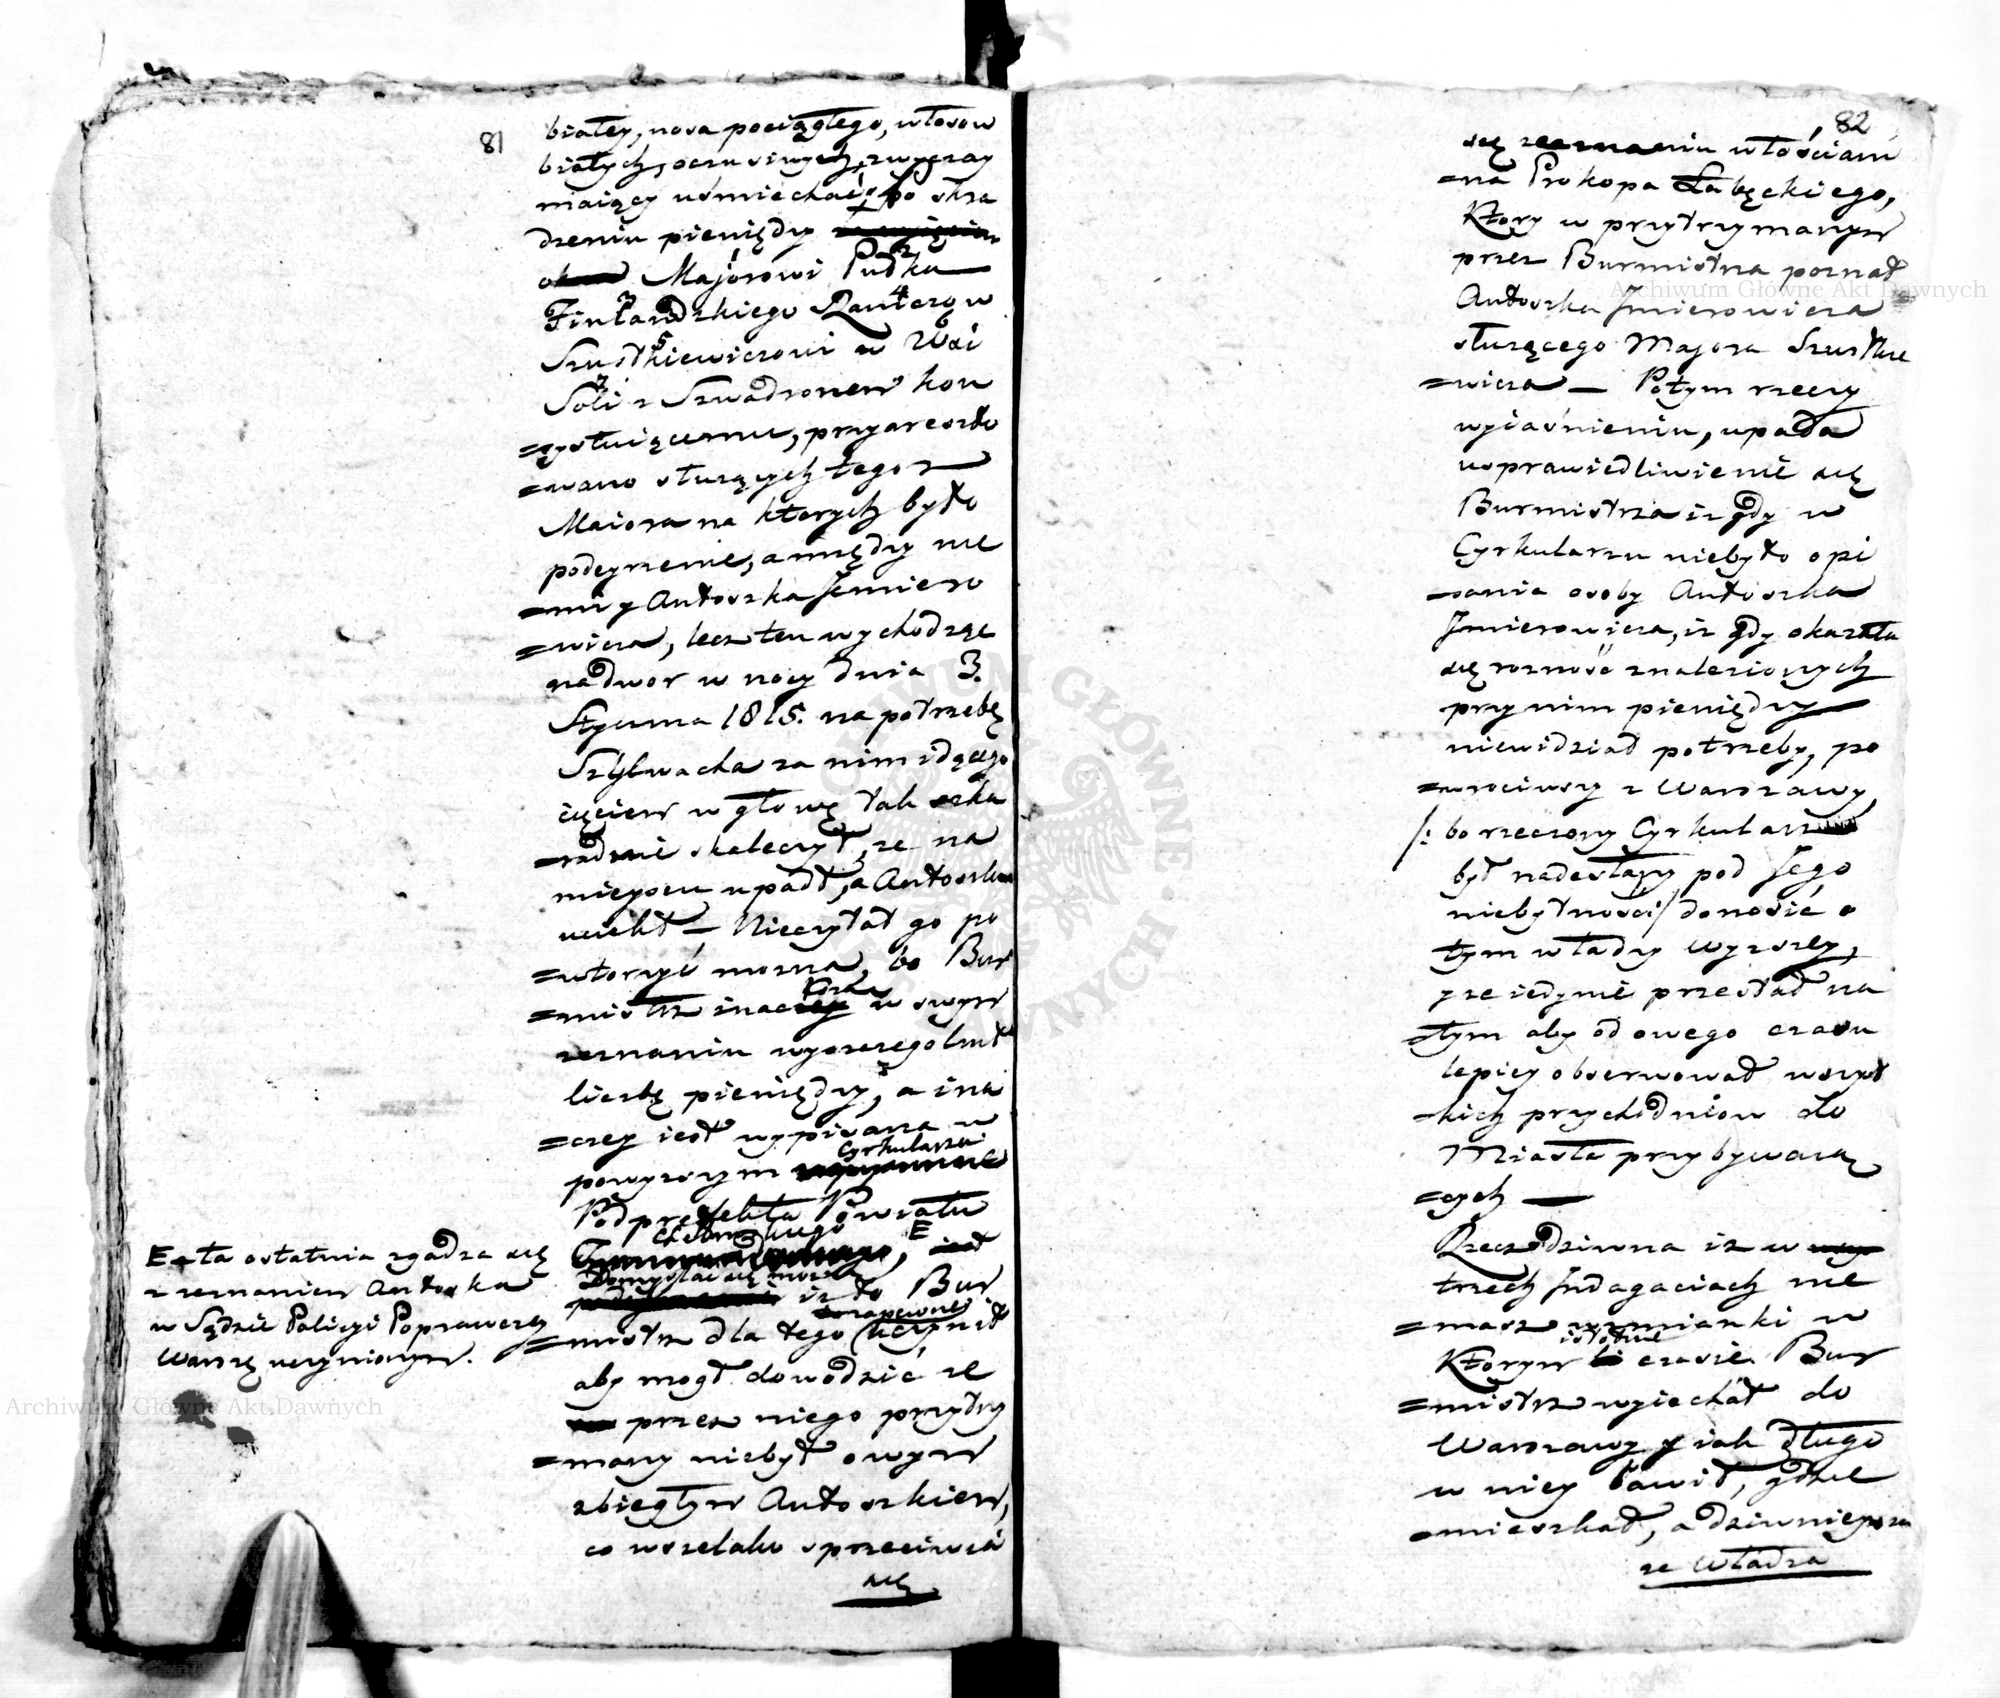 81
białey, nosa pociągłego, włosow
białych, oczu siwych, zwyczay
maiący uśmiechać się, po skra
dzeniu pieniędzy
Majorowi Pułku
Finlandzkiego Ranierow
Szustkiewiczowi w Wsi
Soli z Szwadronem kon
=systuiącemu, przyareszto
=wano służących tegoz
Maiora na ktorych było
podeyrzenie, a między nie
=mi y Antoszka Jzmiero
=wicza, lecz ten wychodząc
nadwor w nocy dnia 3.
Stycznia 1815. na potrzebę
Szylwacha za nim idącego
cięciem w głowę tak szka
=radnie skaleczył, ze na
mieyscu upadł, a Antoszka
uciekł – Nieczytał go po
=wtorzyć mozna, bo Bur
=mistrz inaczey w swym
zeznaniu wyszczegolnił
liczbę pieniędzy, a ina
=czey iest wypisana w
Cyrkularzu
powyzszym
Podprefekta Powiatu
E
Domyslac się mozna
iz to Bur
zapewne
=mistrz dla tego uczynił
aby mogł dowodzić ze
przez niego przytrzy
=many niebył owym
zbiegłym Antoszkiem,
co wszelako sprzeciwia
się
E – ta ostatnia zgadza się
z zeznaniem Antoszka
w Sądzie Policyi Poprawczey
Warsz. uczynionym.
82
się zeznaniu włościani
=na Prokopa Łabęckiego,
Ktory w przytrzymanym
przez Burmistrza poznał
Antoszka Jzmierowicza
służącego Majora Szustkie
=wicza — Po tym rzeczy
wyiaśnieniu, upada
usprawiedliwienie się
Burmistrza iz gdy w
Cyrkularzu niebyło opi
=sania osoby Antoszka
Jzmierowicza, iz gdy okazała
się rozność znalezionych
przy nim pieniędzy
niewidział potrzeby, po
=wrociwszy z Warszawy
/: bo rzeczony Cyrkularz
był nadesłany pod Jego
niebytność/ donosić o
tym władzy wyzszey,
y ze iedynie przestał na
=tym aby od owego czasu
lepiey obserwował wszyst
=kich przychodniow do
Miasta przybywaią
=cych —
Rzecz dziwna iz w
trzech Jndagaciach nie
=masz wzmianki w
istotnie
Ktorym czasie Bur
=mistrz wyiechał do
Warszawy y iak długo
w niey bawił, gdzie
=mieszkał, a dziwnieysza
ze Władza